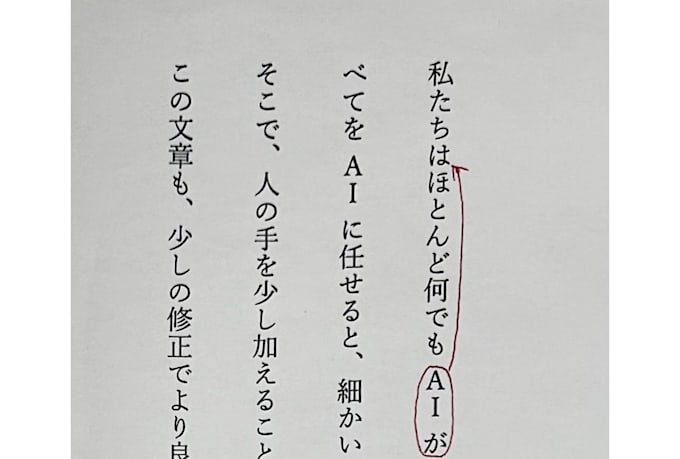 私たちはほとんど何でもAIが
べてをAIに任せると、細かい
そこで、人の手を少し加えること
この文章も、少しの修正でより良